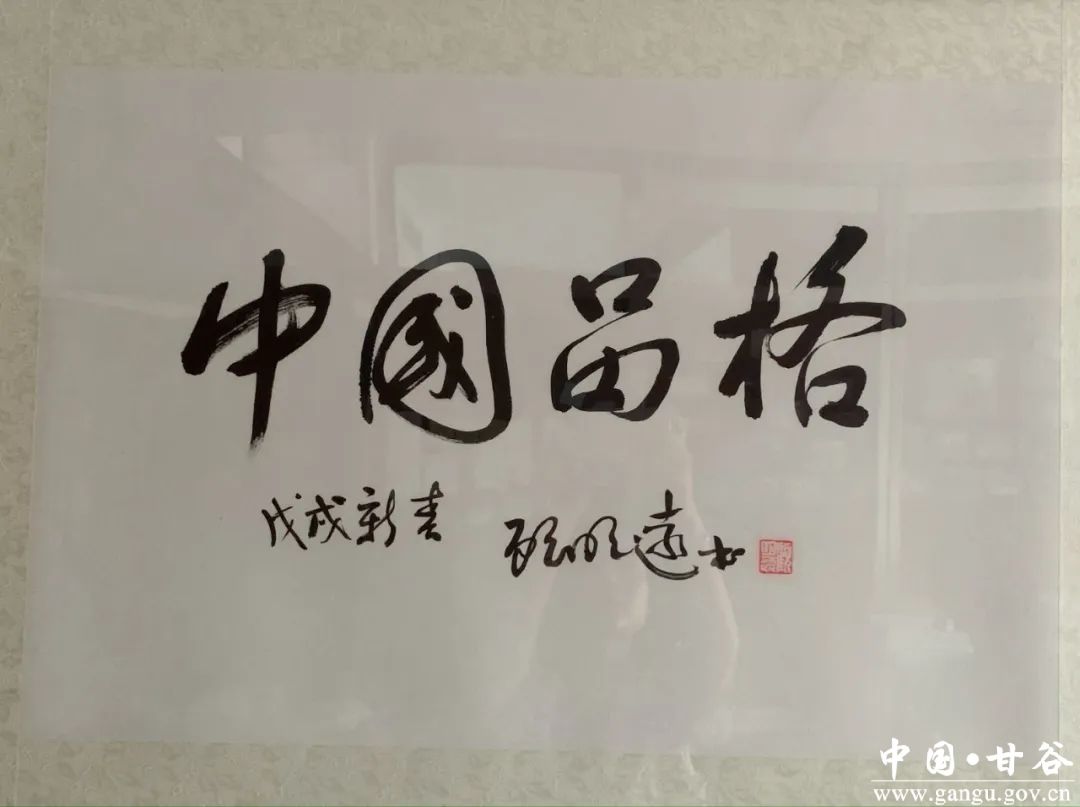 中國品格
戊戌新春 顾明远书
中国·甘谷
www.gangu.gov.cn